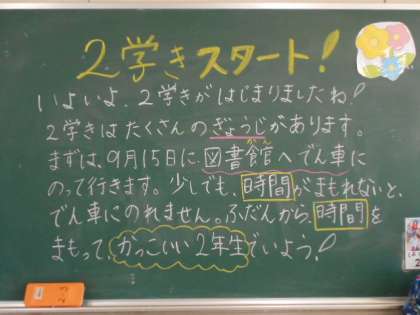 2学きスタート!
いよいよ、2学きがはじまりましたね!
2学きはたくさんのぎょうじがあります。
まずは、9月15日に、図書館へでん車に
のって行きます。少しでも、時間がまもれないと、
でん車にのれません。ふだんから、時間を
まもって、かっこいい2年生でいよう!